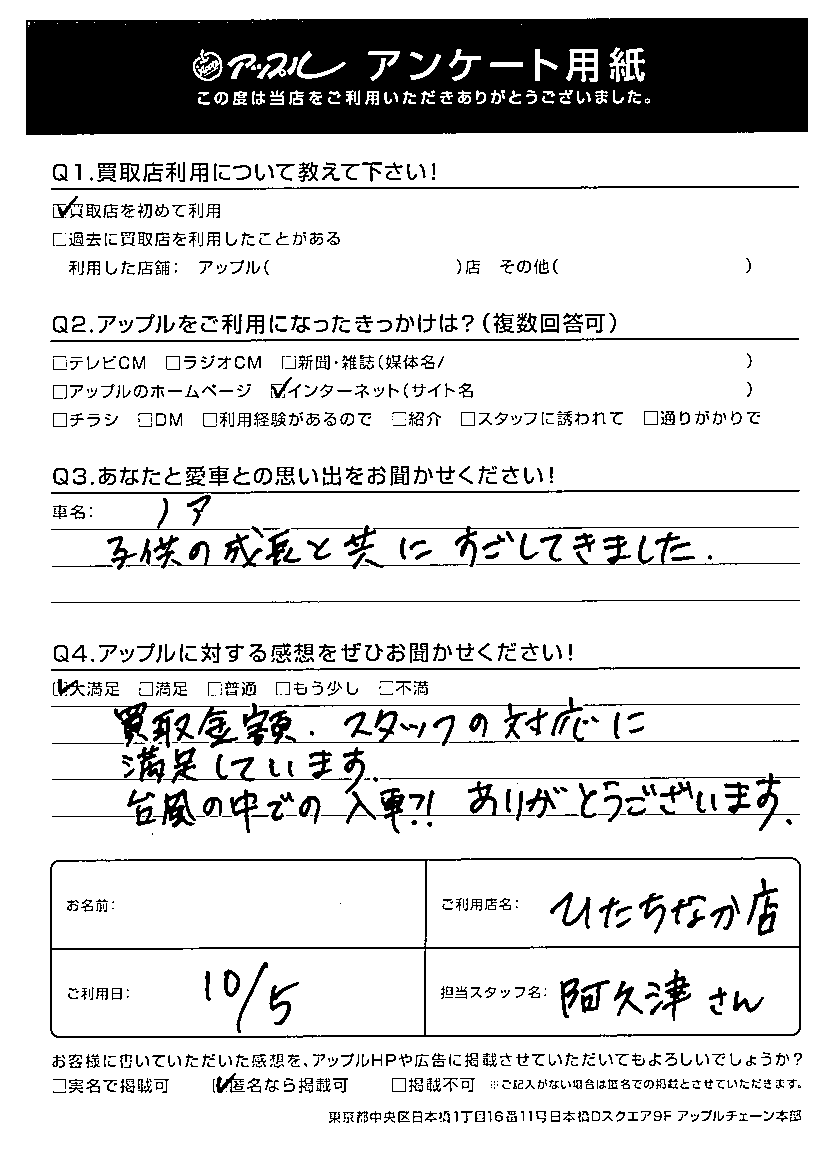 Happy アップル アンケート用紙
この度は当店をご利用いただきありがとうございました。
Q1.買取店利用について教えて下さい!
☑買取店を初めて利用
□過去に買取店を利用したことがある
利用した店舗： アップル( )店 その他( )
Q2.アップルをご利用になったきっかけは?(複数回答可)
□テレビCM □ラジオCM □新聞・雑誌(媒体名/ )
□アップルのホームページ ☑インターネット(サイト名 )
□チラシ □DM □利用経験があるので □紹介 □スタッフに誘われて □通りがかりで
Q3.あなたと愛車との思い出をお聞かせください!
車名： ノア
子供の成長と共に すごしてきました.
Q4.アップルに対する感想をぜひお聞かせください!
☑大満足 □満足 □普通 □もう少し □不満
買取金額. スタッフの対応に
満足しています.
台風の中での入車?! ありがとうございます.
お名前: ご利用店名: ひたちなか店
ご利用日: 10/5 担当スタッフ名: 阿久津さん
お客様に書いていただいた感想を、アップルHPや広告に掲載させていただいてもよろしいでしょうか?
□実名で掲載可 ☑匿名なら掲載可 □掲載不可 ※ご記入がない場合は匿名での掲載とさせていただきます。
東京都中央区日本橋1丁目16番11号日本橋Dスクエア9F アップルチェーン本部